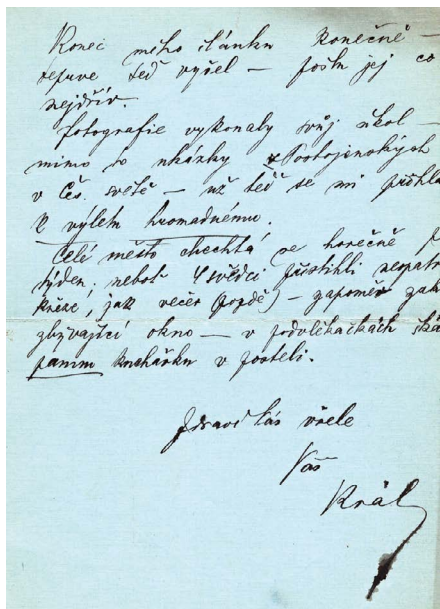 Konec mého článku konečně –
teď vyšel – pošlu jej co
nejdřív.
Fotografie vykonaly svůj úkol –
mimo to ukázky Postojenských
v Čes. světě – už teď se mi
k výletu hromadnému.
Celé město chechtá se horečně
týden, neboť 4 svědci přistihli
kněze, jak večer (pozdě) – zapoměv
zbývající okno – v podvlíkačkách
pannu kuchařku v posteli.
Zdraví Vás vřele
Váš
Král